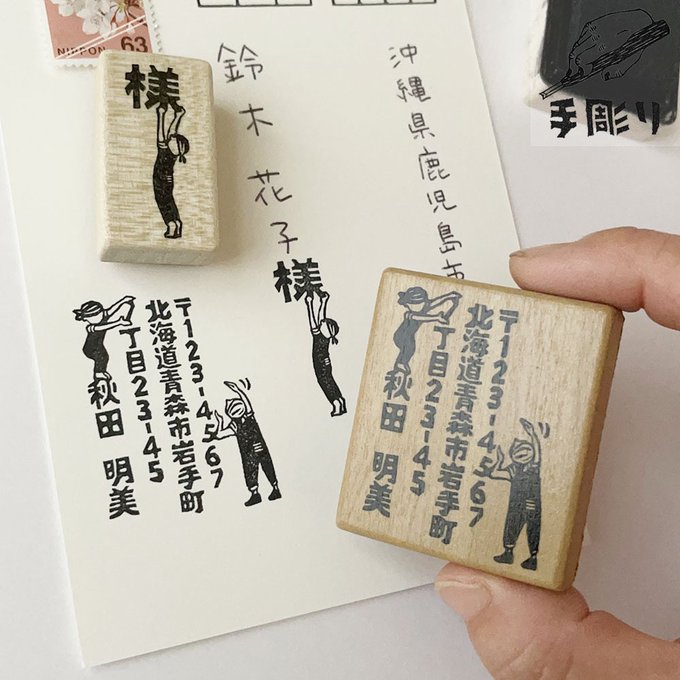 NIPPON 63
様
鈴木花子
様
沖縄県鹿児島市
手彫り
〒123-4567
北海道青森市岩手町
丁目23-45
秋田 明美
〒123-4567
北海道青森市岩手町
丁目23-45
秋田 明美